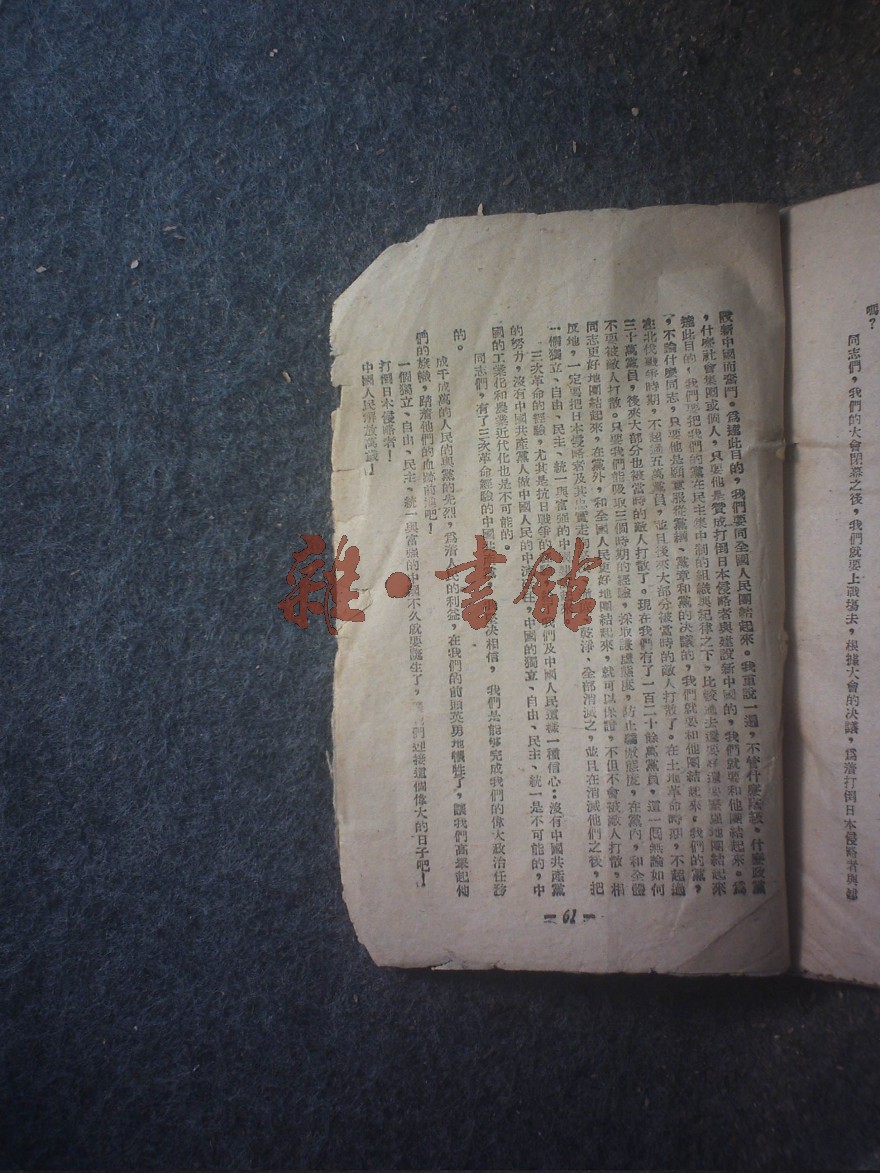 嗎?
同志們,我們的大會閉幕之後,我們就要上戰塲去,根據大會的決議,爲着打倒日本侵略者與建
設新中國而奮鬥。爲達此目的,我們要同全國人民團結起來。我重說一遍,不管什麽階級,什麽政黨
,什麽社會集團或個人,只要他是贊成打倒日本侵略者與建設新中國的,我們就要和他團結起來。爲
達此目的,我們要把我們的黨在民主集中制的組織與紀律之下,比較過去還要團結起來,我們的黨,
,不論什麽同志,只要他是願意服從黨綱、黨章和黨的決議的,我們就要和他團結起來。
在北伐戰爭時期,不超過五萬黨員,並且後來大部分被當時的敵人打散了。在土地革命時期,不超過
三十萬黨員,後來大部分也被當時的敵人打散了。現在我們有了一百二十餘萬黨員,這一囘無論如何
不要被敵人打散。只要我們能吸取三個時期的經驗,採取謙虛態度,防止驕傲態度,在黨內,和全體
同志更好地團結起來,在黨外,和全國人民更好地團結起來,就可以保證,不但不會被敵人打散,相
反地,一定要把日本侵略者及其忠實走狗 乾淨、全部消滅之,並且在消滅他們之後,把
一個獨立、自由、民主、統一與富強的中
三次革命的經驗,尤其是抗日戰爭的 我們及中國人民這樣一種信心:沒有中國共產黨
的努力,沒有中國共產黨人做中國人民的中流砥柱,中國的獨立、自由、民主、統一是不可能的,中
國的工業化和農業近代化也是不可能的。
同志們,有了三次革命經驗的中國共產黨,我堅決相信,我們是能够完成我們的偉大政治任務
的。
成千成萬的人民的與黨的先烈,爲着人民的利益,在我們的前頭英勇地犧牲了,讓我們高舉起他
們的旗幟,踏着他們的血跡前進吧!
一個獨立、自由、民主、統一與富強的中國不久就要誕生了, 我們迎接這個偉大的日子吧!
打倒日本侵略者!
中國人民解放萬歲!
61
雜·書館